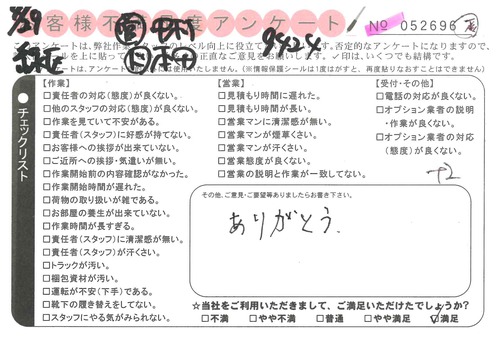 お客様不満足度アンケート
№ 052696
8/29
中村
9424
アンケートは、弊社作業スタッフのレベル向上に役立て
否定的なアンケートになりますので、
ールを上に貼って
正直なご意見をお願いします。✓印は、いくつでも結構です。
アンケートは
使用いたしません。(※情報保護シールは1度はがすと、再度貼りなおすことはできません)
チェックリスト
【作業】
□責任者の対応(態度)が良くない。
□他のスタッフの対応(態度)が良くない。
□作業を見ていて不安がある。
□責任者(スタッフ)に好感が持てない。
□お客様への挨拶が出来ていない。
□ご近所への挨拶・気遣いが無い。
□作業開始前の内容確認がなかった。
□作業開始時間が遅れた。
□荷物の取り扱いが雑である。
□お部屋の養生が出来ていない。
□作業時間が長すぎる。
□責任者(スタッフ)に清潔感が無い。
□責任者(スタッフ)が汗くさい。
□トラックが汚い。
□梱包資材が汚い。
□運転が不安(下手)である。
□靴下の履き替えをしてない。
□スタッフにやる気がみられない。
【営業】
□見積もり時間に遅れた。
□見積もり時間が長い。
□営業マンに清潔感が無い。
□営業マンが煙草くさい。
□営業マンが汗くさい。
□営業態度が良くない。
□営業の説明と作業が一致してない。
【受付・その他】
□電話の対応が良くない。
□オプション業者の説明
・作業が良くない。
□オプション業者の対応
(態度)が良くない。
+2
その他、ご意見・ご要望等ありましたらお書き下さい。
ありがとう.
☆当社をご利用いただきまして、ご満足いただけたでしょうか?
□不満 □やや不満 □普通 □やや満足 ☑満足